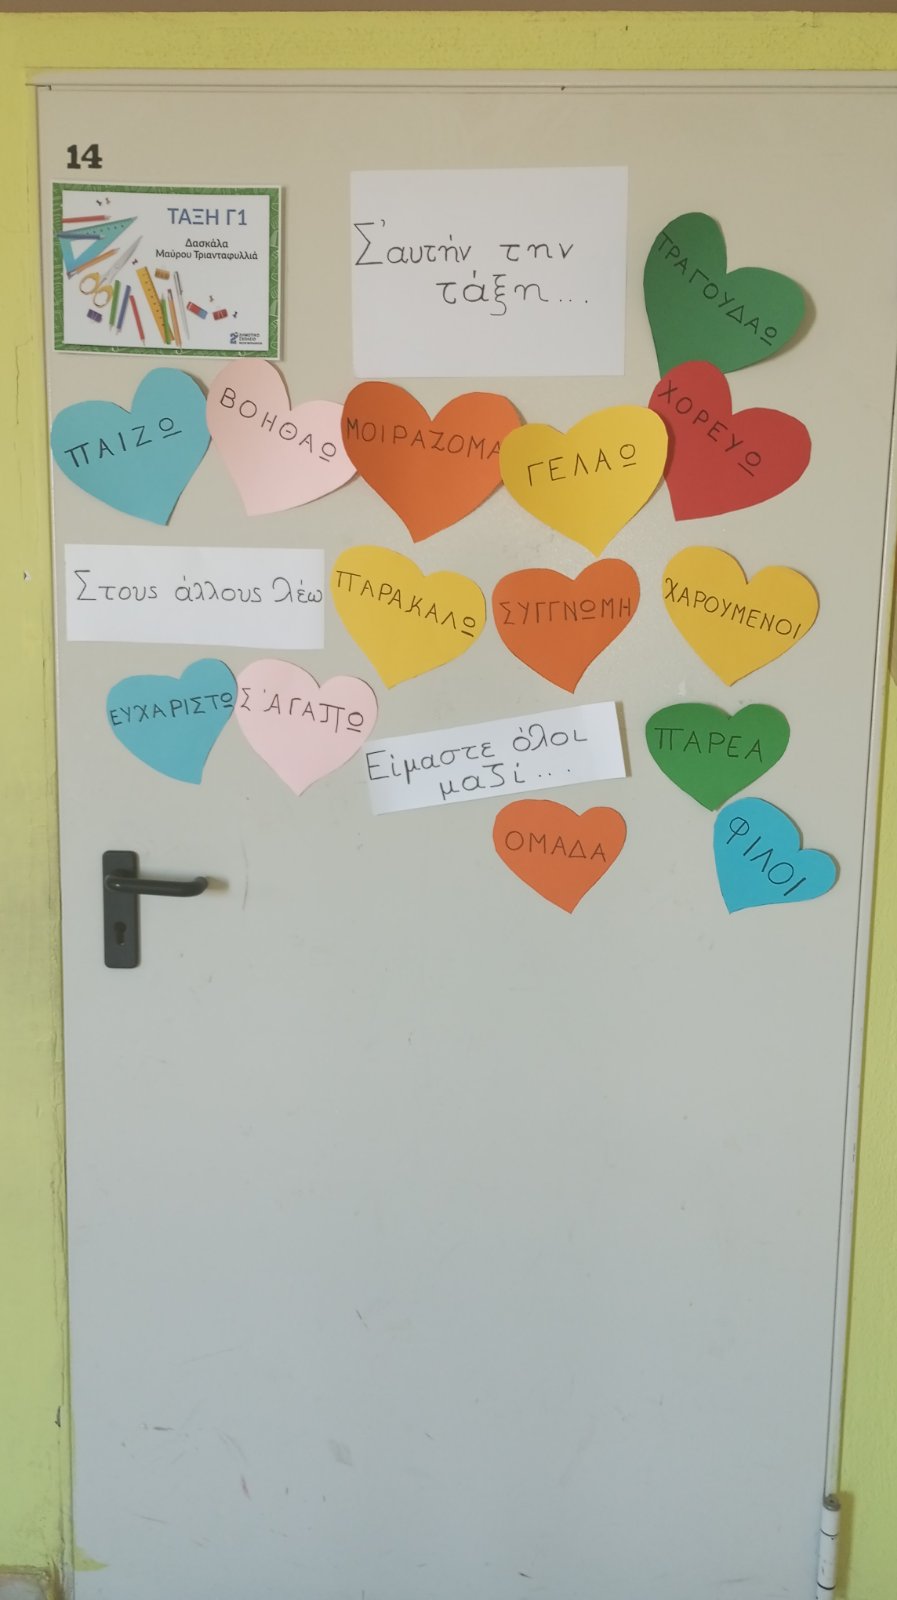 14
ΤΑΞΗ Γ1
Δασκάλα
Μαύρου Τριανταφυλλιά
Σ'αυτήν την
τάξη...
ΤΡΑΓΟΥΔΑΩ
ΠΑΙΖΩ
ΒΟΗΘΑΩ
ΜΟΙΡΑΖΟΜΑ
ΓΕΛΑΩ
ΧΟΡΕΥΩ
Στους άλλους λέω
ΠΑΡΑΚΑΛΩ
ΣΥΓΓΝΩΜΗ
ΕΥΧΑΡΙΣΤΩ
Σ'ΑΓΑΠΩ
Είμαστε όλοι
μαζί...
ΧΑΡΟΥΜΕΝΟΙ
ΠΑΡΕΑ
ΟΜΑΔΑ
ΦΙΛΟΙ